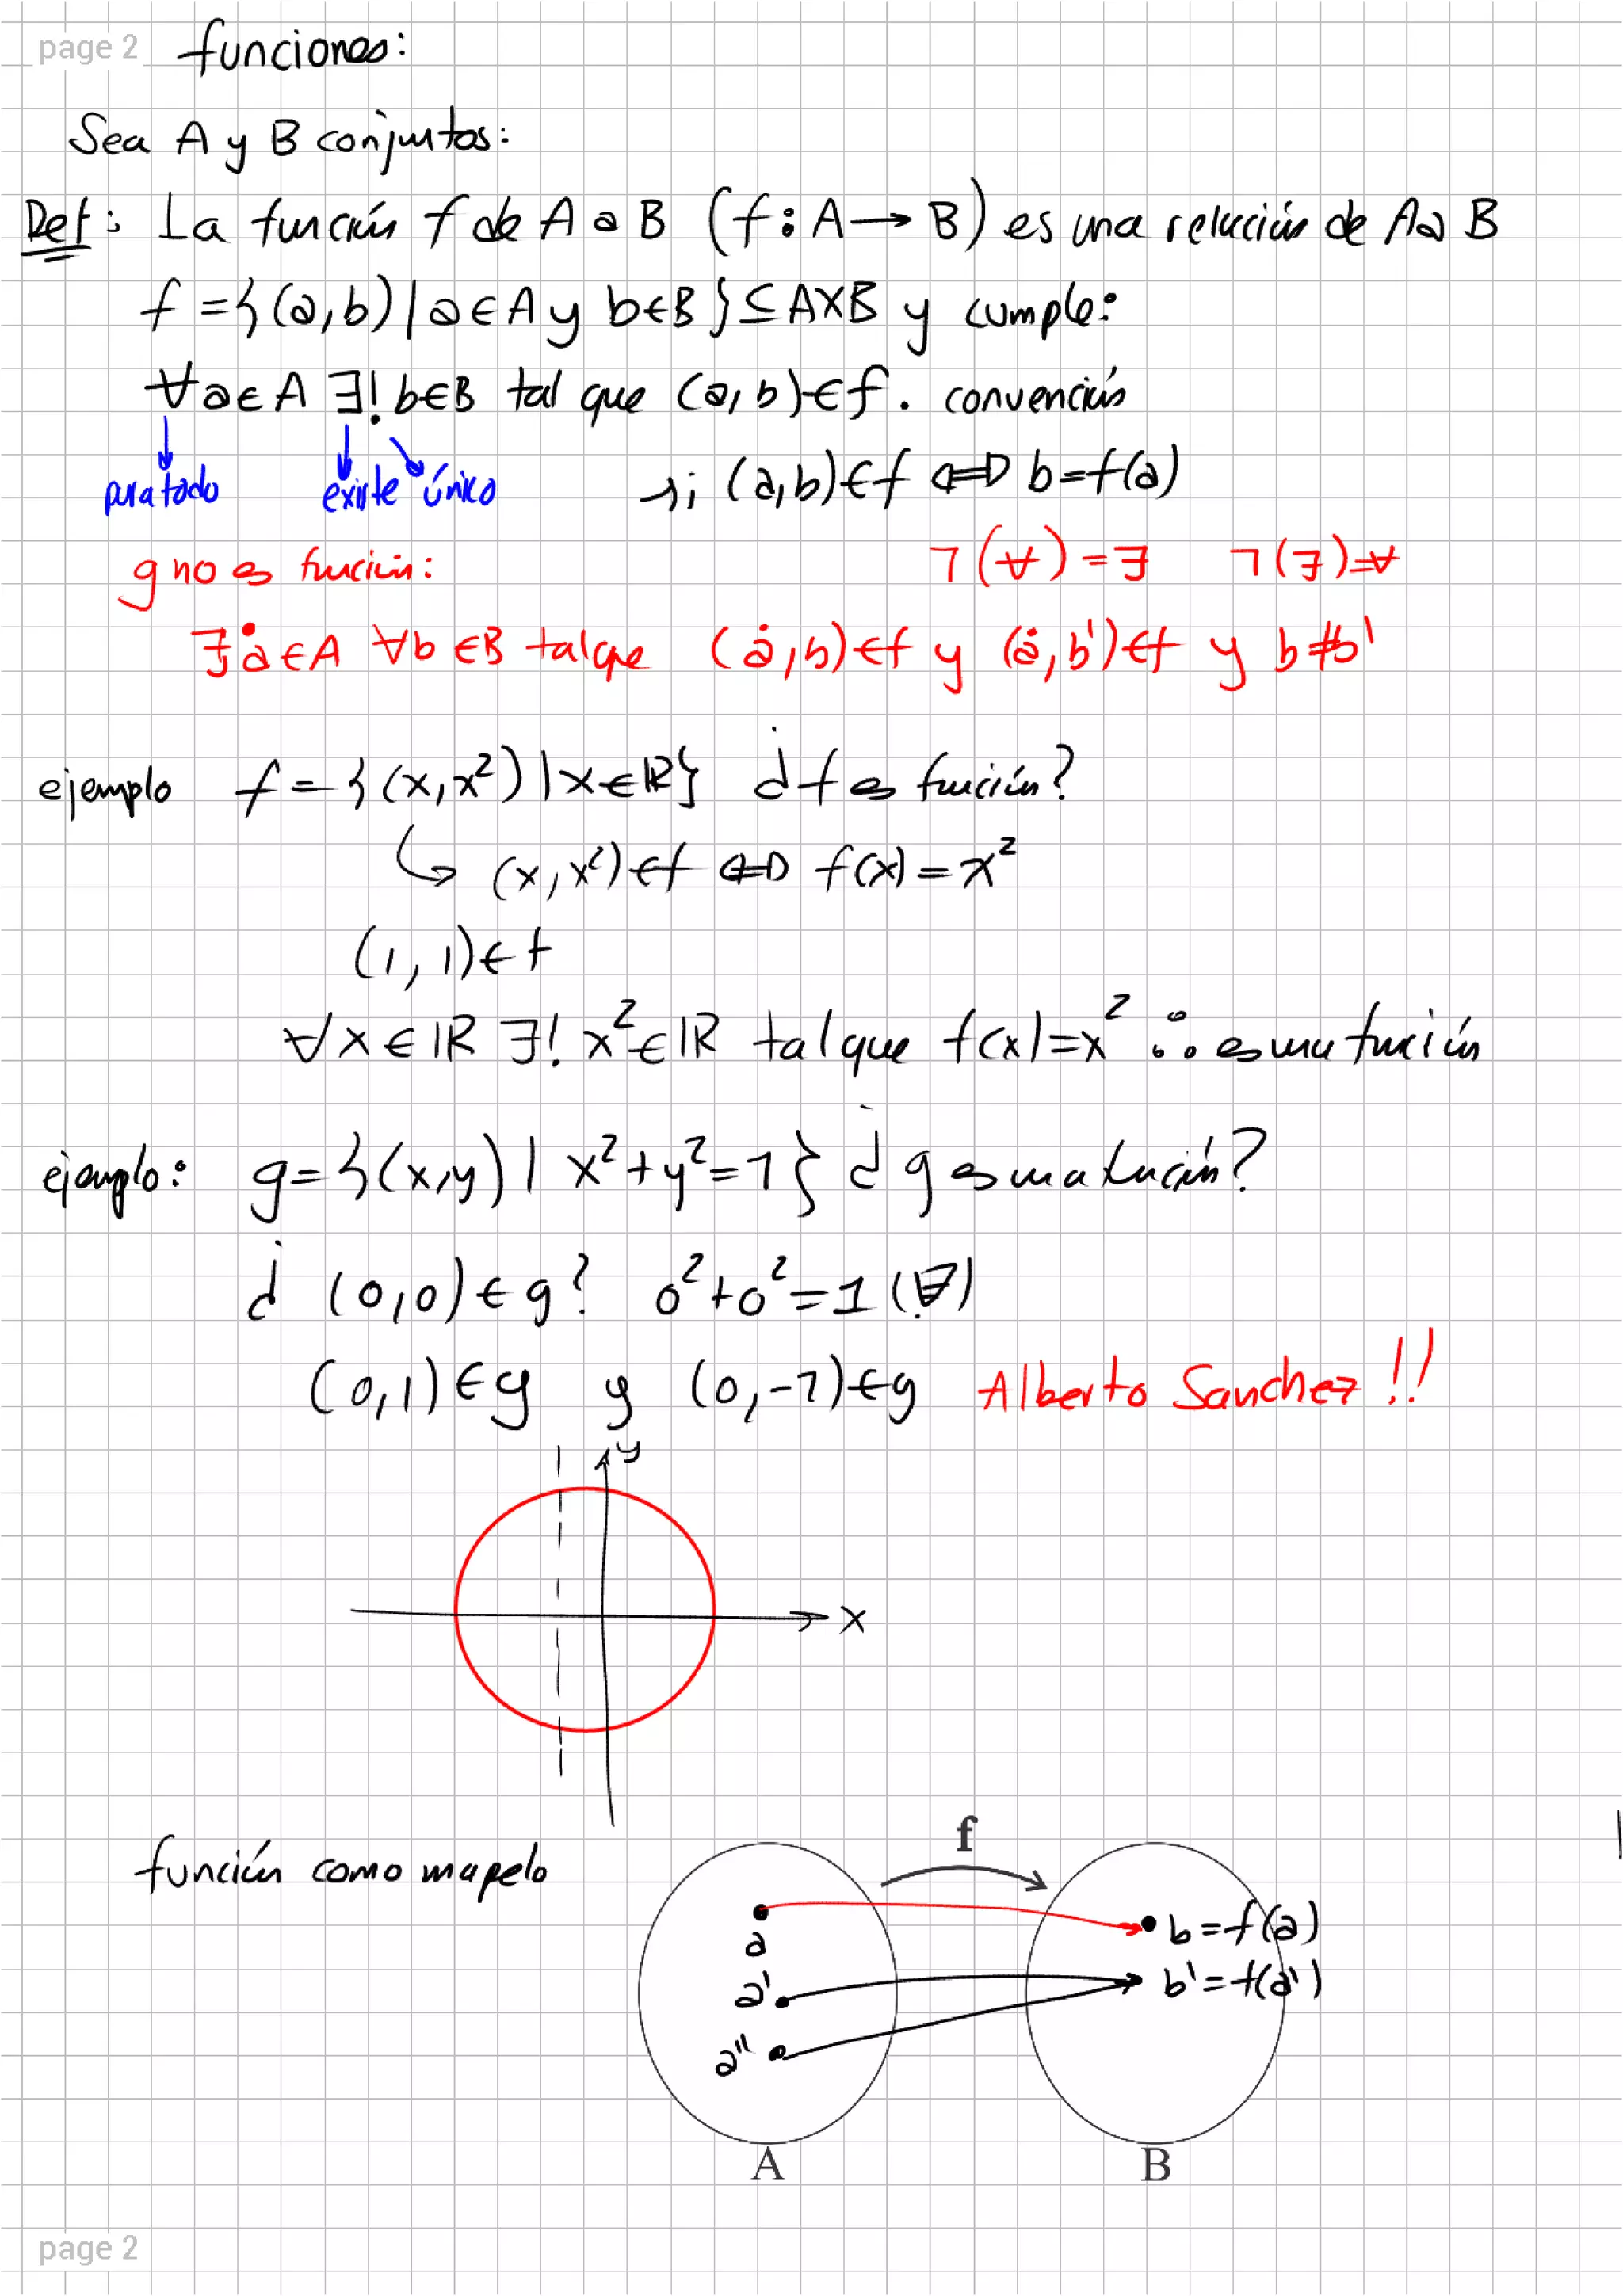 page 2
funciones:
Sea A y B conjuntos:
Def: La función f de A a B (f: A → B) es una relación de A a B
f = {(a,b) | a ∈ A y b ∈ B} ⊆ A×B y cumple:
∀a∈A ∃! b∈B tal que (a,b)∈f. convención
para todo existe único si (a,b)∈f ⇔ b=f(a)
g no es función: ¬(∀)=∃ ¬(∃)=∀
∃ȧ∈A ∀b∈B tal que (ȧ,b)∈f y (ȧ,b')∈f y b≠b'
ejemplo f = {(x,x²) | x∈ℝ} ¿f es función?
↳ (x,x²)∈f ⇔ f(x)=x²
(1,1)∈f
∀x∈ℝ ∃! x²∈ℝ tal que f(x)=x² ∴ es una función
ejemplo: g={(x,y) | x²+y²=1} ¿g es una función?
¿(0,0)∈g? 0²+0²=1
(0,1)∈g y (0,-1)∈g Alberto Sanchez!!
y
x
función como mapelo
f
a b=f(a)
a' b'=f(a')
a''
A B
page 2